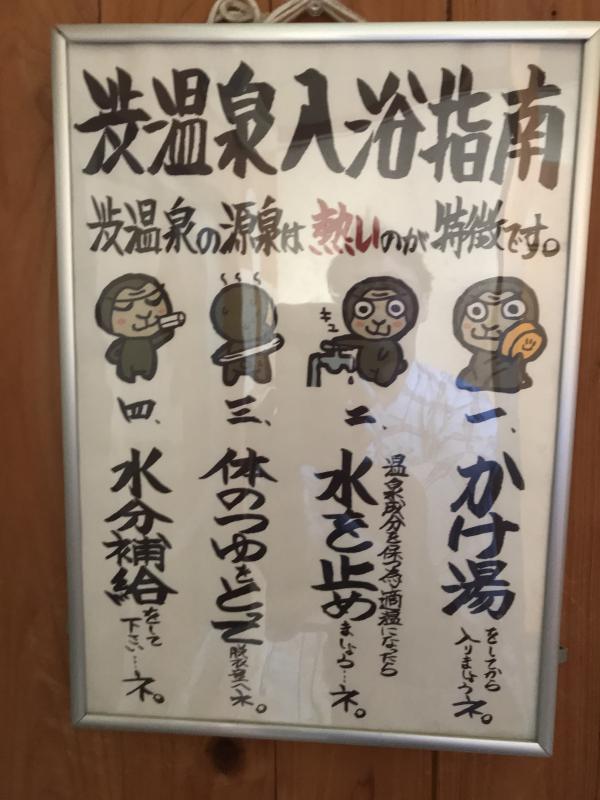 渋温泉入浴指南
渋温泉の源泉は熱いのが特徴です。
一、
かけ湯
をしてから
入りましょう…ネ。
キュ
二、
温泉成分を保つ為、適温になったら
水を止め
ましょう…ネ。
三、
体のつゆをとって
脱衣室へネ。
四、
水分補給
をして
下さい…ネ。